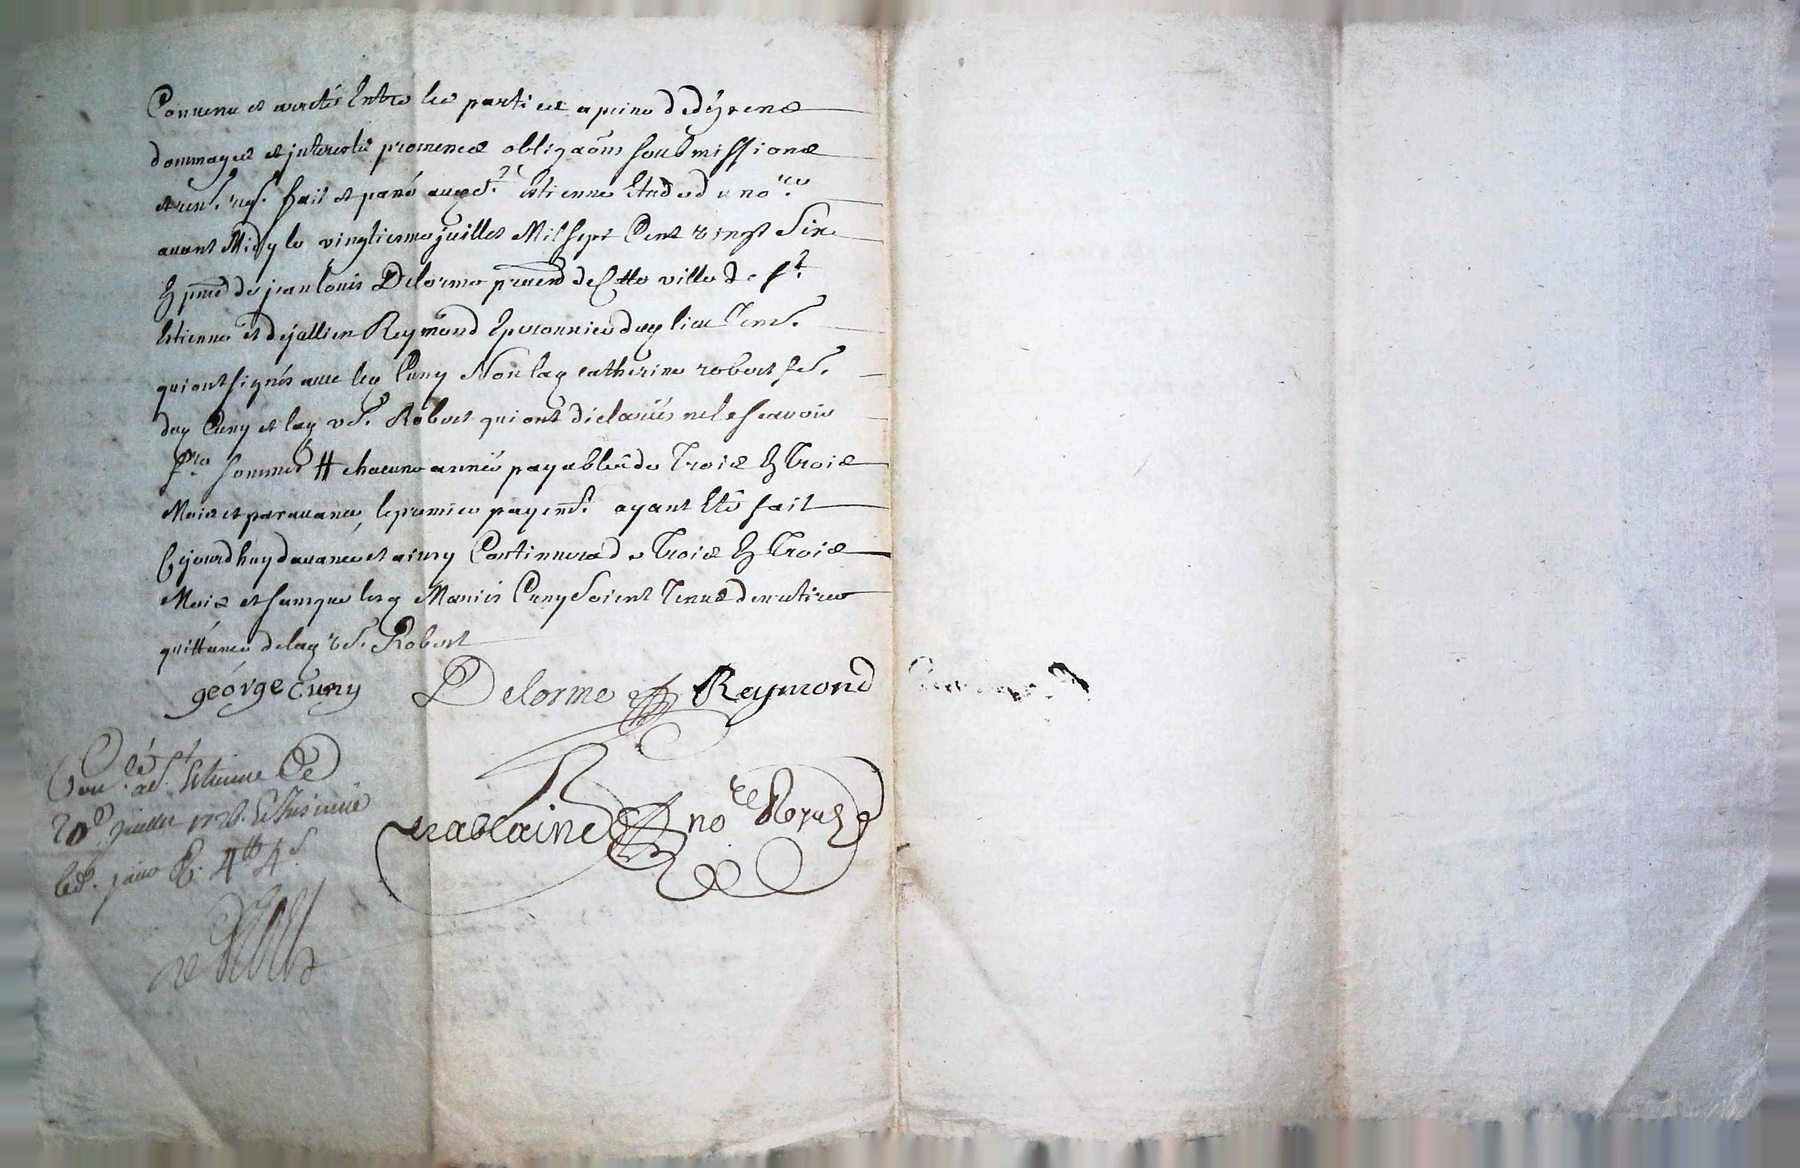 Convenu et arrettés Entre les parties a peine de dépens
dommages et interests promences obligaôns soubmissions
et ren.s res. fait et passé aud St. Estienne Etude du no.re
avant Midy le vingtiesme juillet Mil sept Cent vingt Six
En pnce de jean louis Delorme pratn de Cette ville de St.
Estienne et de jullien Reymond Eperonnier dud lieu Tem.s
qui ont signés avec led Cuny Non lad catherine robert fe.
dud Cuny et lad ve. Robert qui ont déclarés ne le scavoir
somme # chacune année payable de Trois En Trois
Mois et par avance, le premier payemt. ayant Eté fait
Cejourdhuy davance et ainsy Continuera de Trois En Trois
Mois et sans que lesd Mariés Cuny Soient Tenus den retirer
quittance de lad ve. Robert
géorge Cuny Delorme Reymond
Con.lé a St. Etienne Ce
20e juillet 1726.
4tt 4s.
no.re Royal